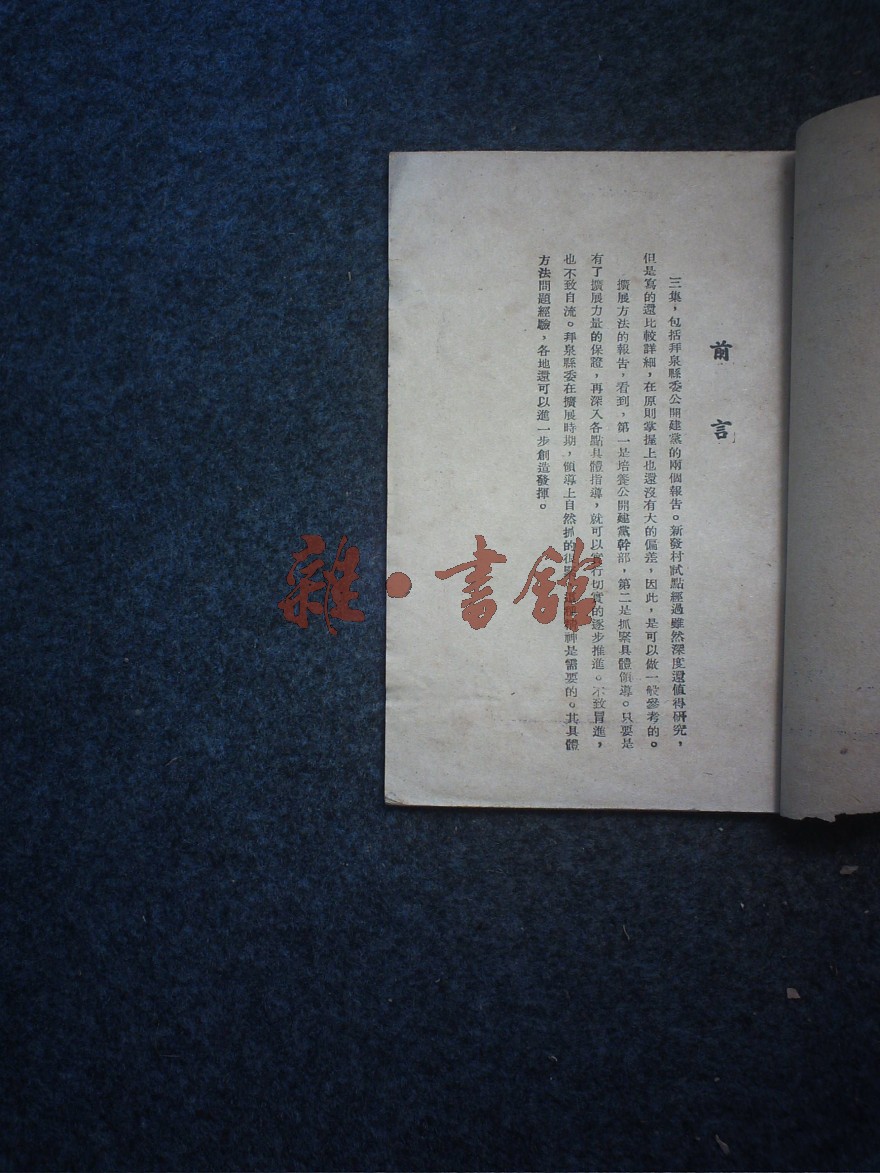 前言
三集，包括拜泉縣委公開建黨的兩個報告。新發村試點經過雖然深度還值得研究，
但是寫的還比較詳細，在原則掌握上也還沒有大的偏差，因此，是可以做一般參考的。
擴展方法的報告，看到，第一是培養公開建黨幹部，第二是抓緊具體領導。只要是
有了擴展力量的保證，再深入各點具體指導，就可以實行切實的逐步推進。不致冒進，
也不致自流。拜泉縣委在擴展時期，領導上自然抓的很神是需要的。其具體
方法問題經驗，各地還可以進一步創造發揮。
雜·書館